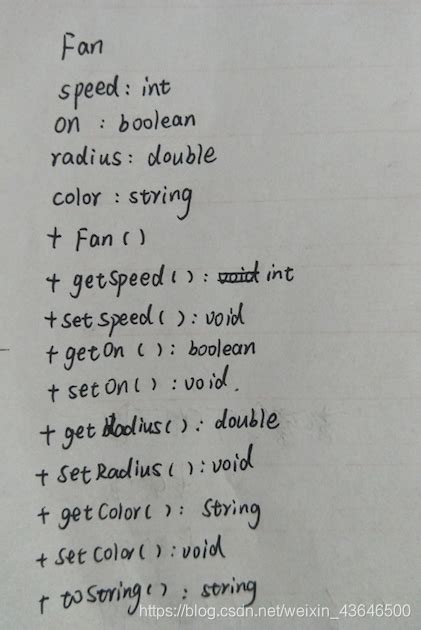 Fan
speed: int
on : boolean
radius: double
color : string
+ Fan()
+ getSpeed(): int
+ setSpeed(): void
+ getOn(): boolean
+ setOn(): void.
+ getRadius(): double
+ setRadius(): void
+ getColor(): String
+ setColor(): void
+ toString(): string
https://blog.csdn.net/weixin_43646500